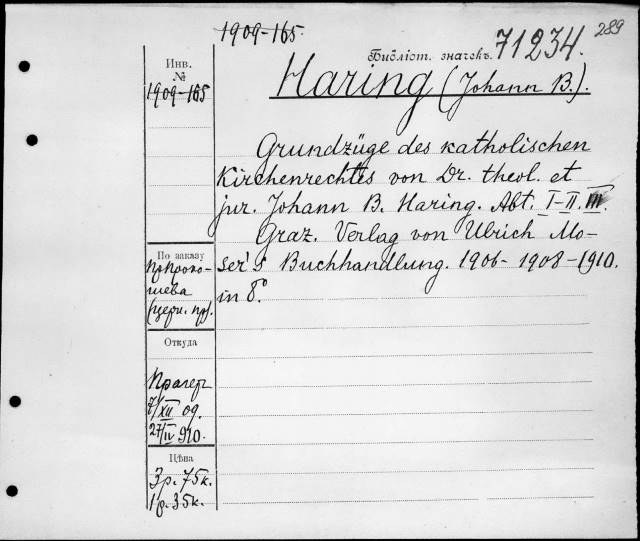 1909-165.
289
Библіот. значекъ. 71234.
Инв.
№
1909-165
Haring (Johann B.).
Grundzüge des katholischen
Kirchenrechtes von Dr. theol. et
jur. Johann B. Haring. Abt. I-II. III
Graz. Verlag von Ulrich Mo-
ser's Buchhandlung. 1906-1908-1910.
in 8°.
По заказу
Пр Проко-
шева
(церк. пр).
Откуда
Прагеръ
7/XII 09.
27/IV 910.
Цѣна
3 р. 75 к.
1 р. 35 к.